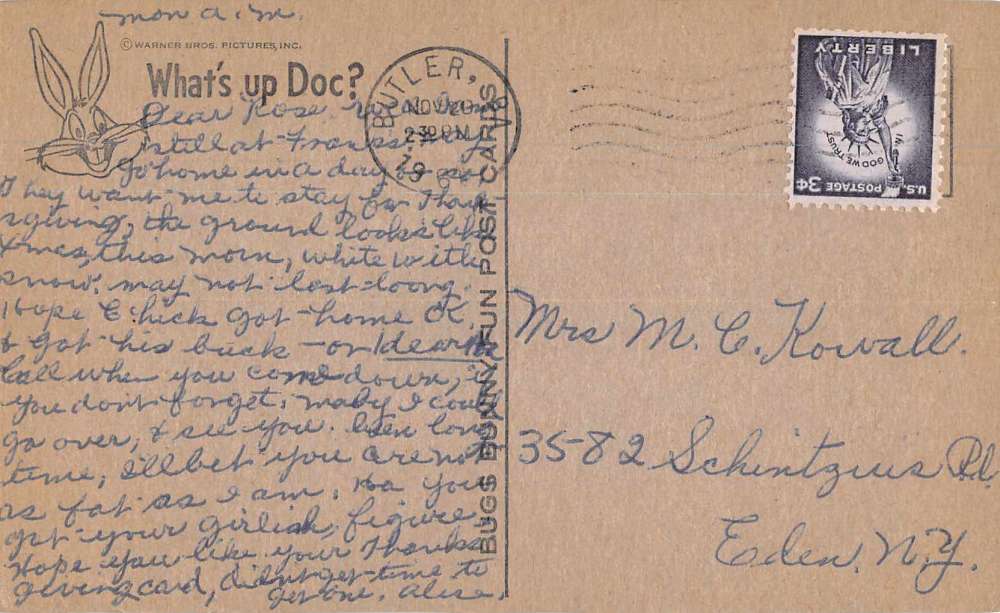 mon a.m.
© WARNER BROS. PICTURES, INC.
What's up Doc?
Dear Rose.
still at
go home in a day or so
They want me to stay for Thank
sgiving, the ground looks like
Xmas, this morn, white with
snow. may not last loong.
Hope Chick got home OK,
& got his buck - or dear,
Call when you come down, if
you dont forget. maby I could
go over, & see you. been long
time, I'll bet you are not
as fat as I am. Ha you
got your girlish, figure.
Hope you like your Thanks
giving card, didn't get time to
get one. Alice.
BUGS BUNNY FUN POST CARDS
BUTLER,
NOV 20
2 30 PM
LIBERTY
IN GOD WE TRUST
U.S. POSTAGE 3¢
Mrs M. C. Kowall.
3582 Schintzius Rd.
Eden, N.Y.